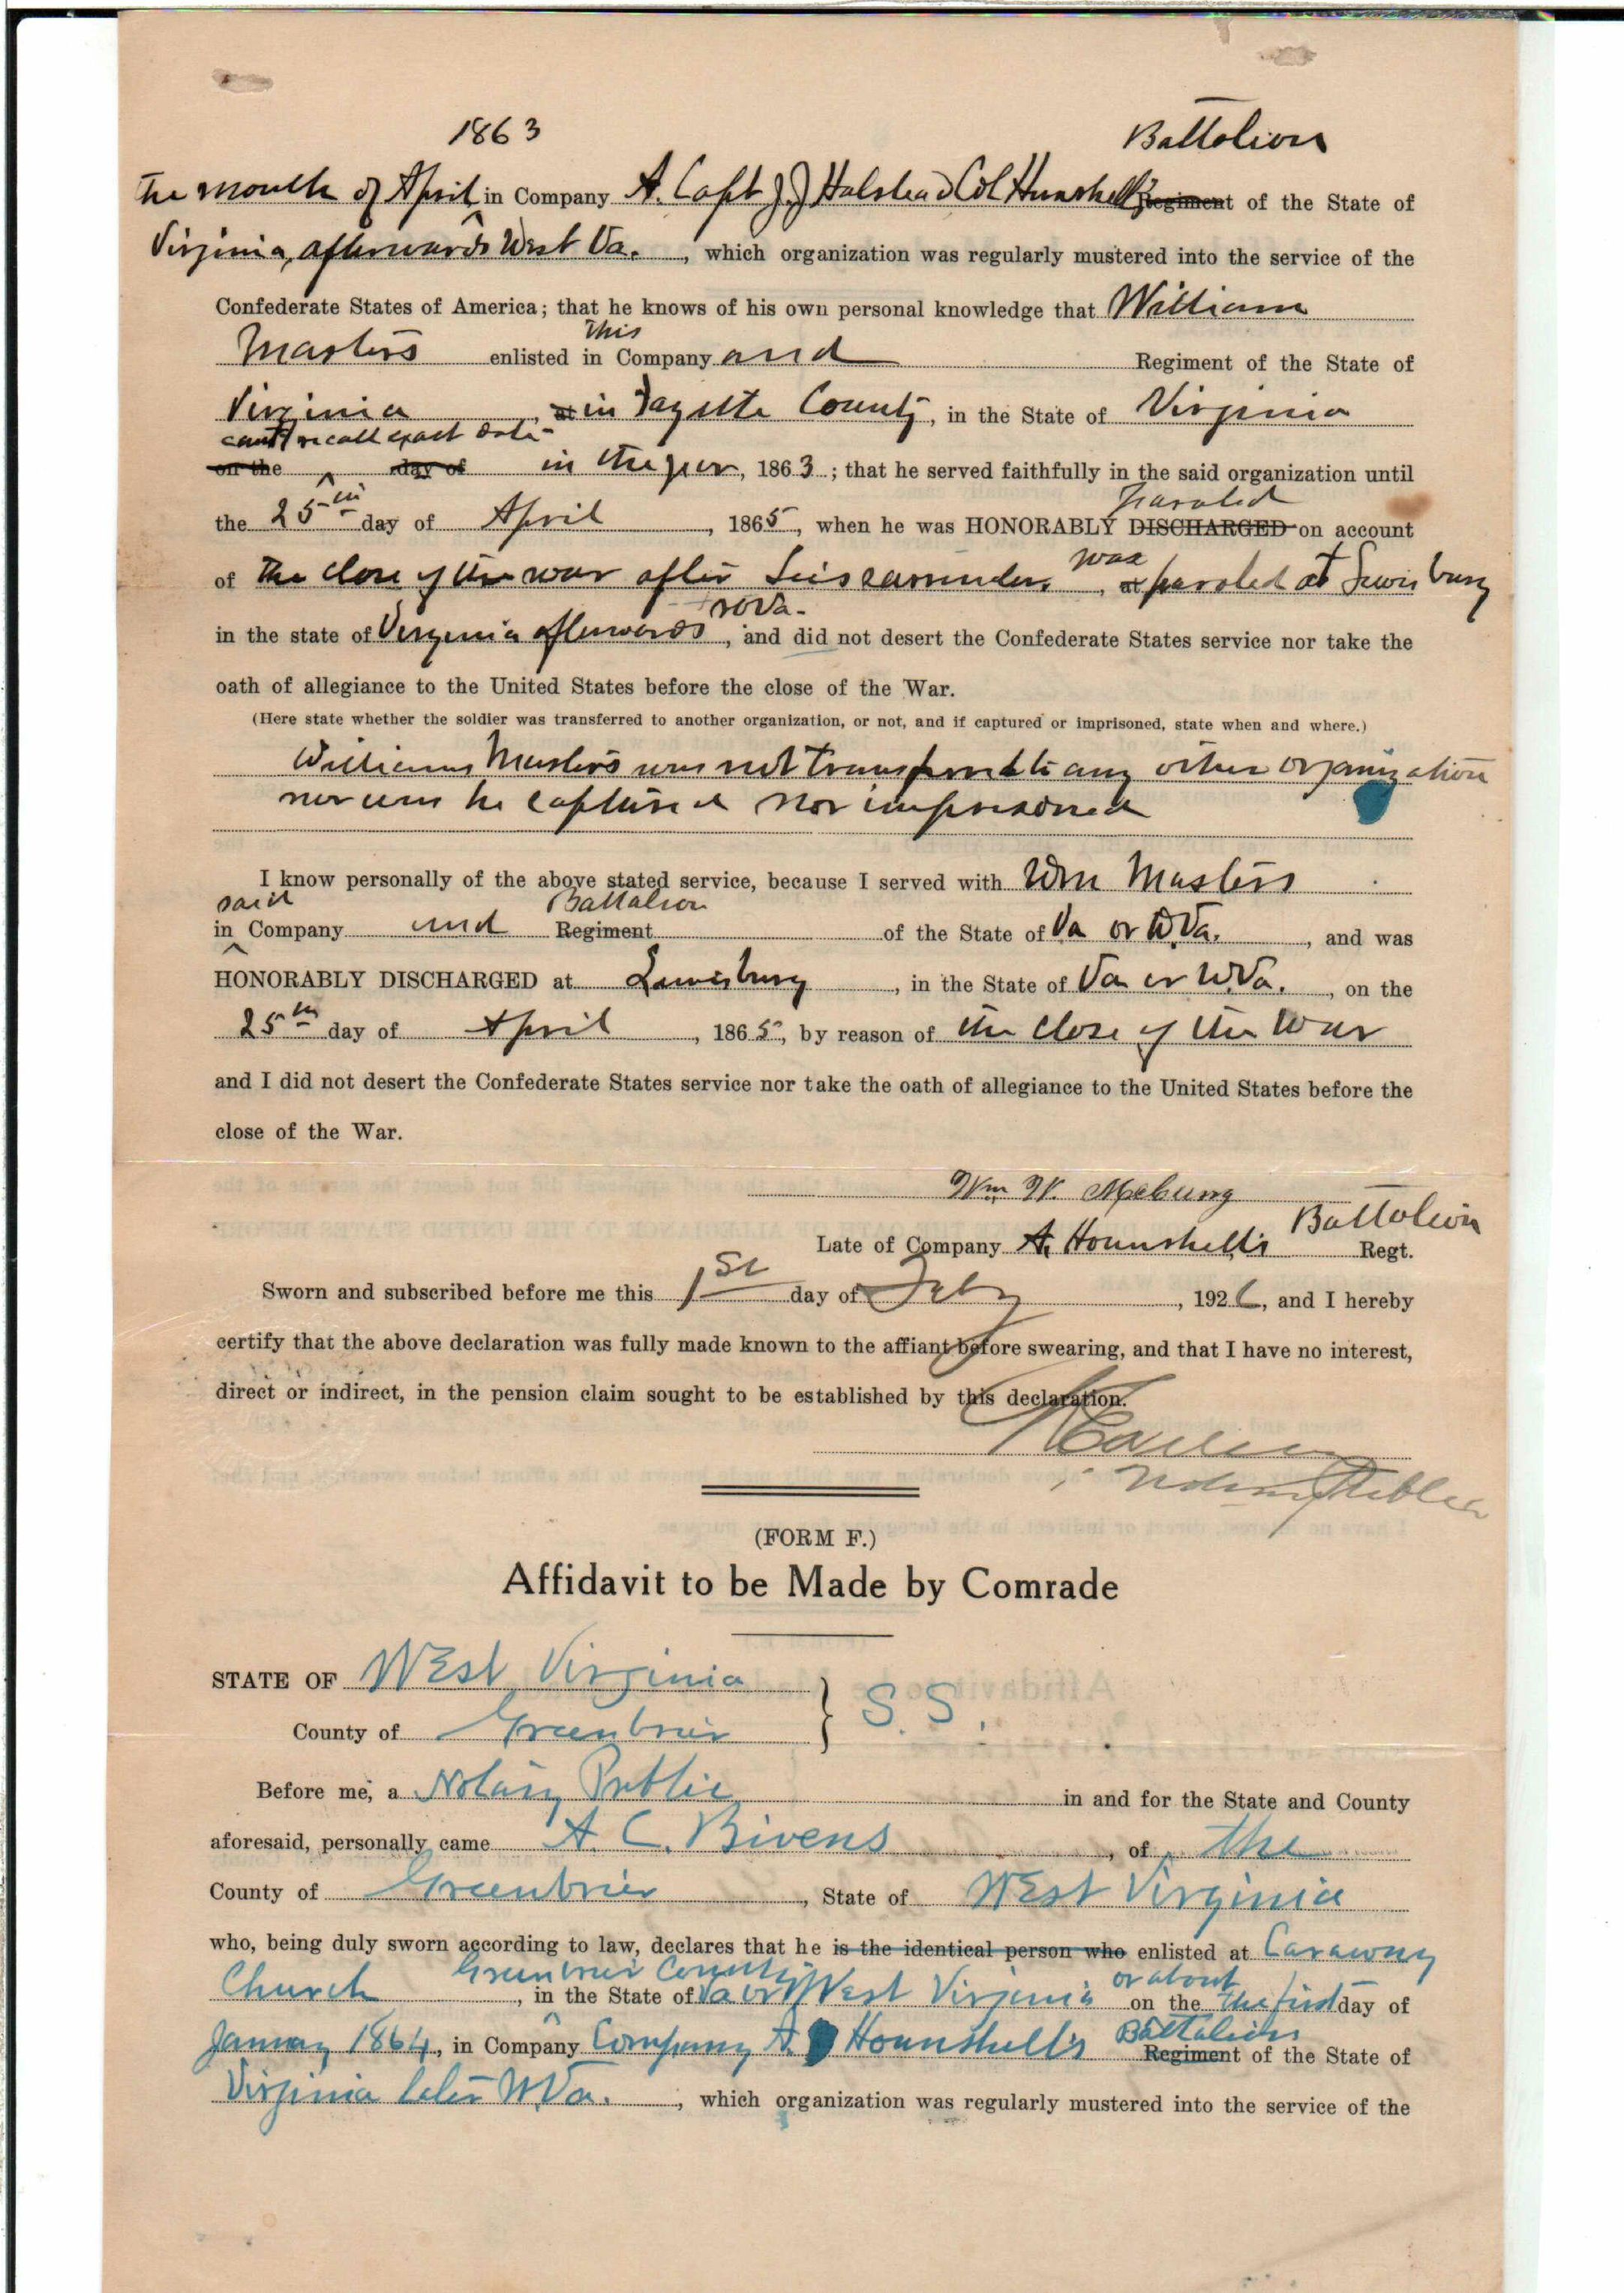 1863 Battalion
The month of April in Company A. Capt J. J Halstead Col Hunshell's Regiment of the State of
Virginia, afterwards West Va. , which organization was regularly mustered into the service of the
Confederate States of America; that he knows of his own personal knowledge that William
this
Masters enlisted in Company and Regiment of the State of
Virginia , at in Fayette County, in the State of Virginia
cant recall exact date
on the day of in the year, 1863; that he served faithfully in the said organization until
paroled
the 25th day of April , 1865, when he was HONORABLY DISCHARGED on account
was
of The close of the war after Lees surrender , at paroled at Lewisburg
W Va.
in the state of Virginia afterwards , and did not desert the Confederate States service nor take the
oath of allegiance to the United States before the close of the War.
(Here state whether the soldier was transferred to another organization, or not, and if captured or imprisoned, state when and where.)
William Masters was not transferred to any other organization
nor was he captured nor imprisoned
I know personally of the above stated service, because I served with Wm Masters
said Battalion
in Company and Regiment of the State of Va or W.Va. , and was
HONORABLY DISCHARGED at Lewisburg , in the State of Va or W.Va. , on the
25th day of April , 1865, by reason of the close of the War
and I did not desert the Confederate States service nor take the oath of allegiance to the United States before the
close of the War.
Wm W. McClung
Battalion
Late of Company A, Hounshell's Regt.
Sworn and subscribed before me this 1st day of Feby , 1926, and I hereby
certify that the above declaration was fully made known to the affiant before swearing, and that I have no interest,
direct or indirect, in the pension claim sought to be established by this declaration.
Notary Public
(FORM F.)
Affidavit to be Made by Comrade
STATE OF West Virginia
} S. S.
County of Greenbrier
Before me, a Notary Public in and for the State and County
aforesaid, personally came A. C. Bivens , of the
County of Greenbrier , State of West Virginia
who, being duly sworn according to law, declares that he is the identical person who enlisted at Caraway
Greenbrier County or about
Church , in the State of Va or West Virginia on the the first day of
Battalion
January 1864, in Company Company A. Hounshell's Regiment of the State of
Virginia later W.Va. , which organization was regularly mustered into the service of the